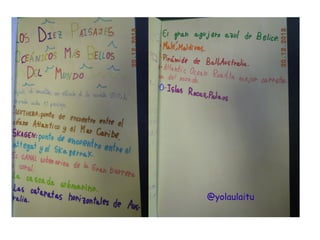 LOS DIEZ PAISAJES
OCEÁNICOS MÁS BELLOS
DEL MUNDO
punto de encuentro entre el
océano Atlántico y el Mar Caribe.
SKAGEN: punto de encuentro entre el
Kattegat y el Skagerrak.
El CANAL submarino de la Gran barrera
coral.
La cascada submarina.
Las cataratas horizontales de Aus-
tralia.
El gran agujero azul de Belice.
Malé, Maldivas.
Pirámide de Ball, Australia.
Atlantic Ocean Road, la mejor carretera
del mundo.
Islas Rocas, Palaos
20.12.2013
20.12.2013
@yolaulaitu